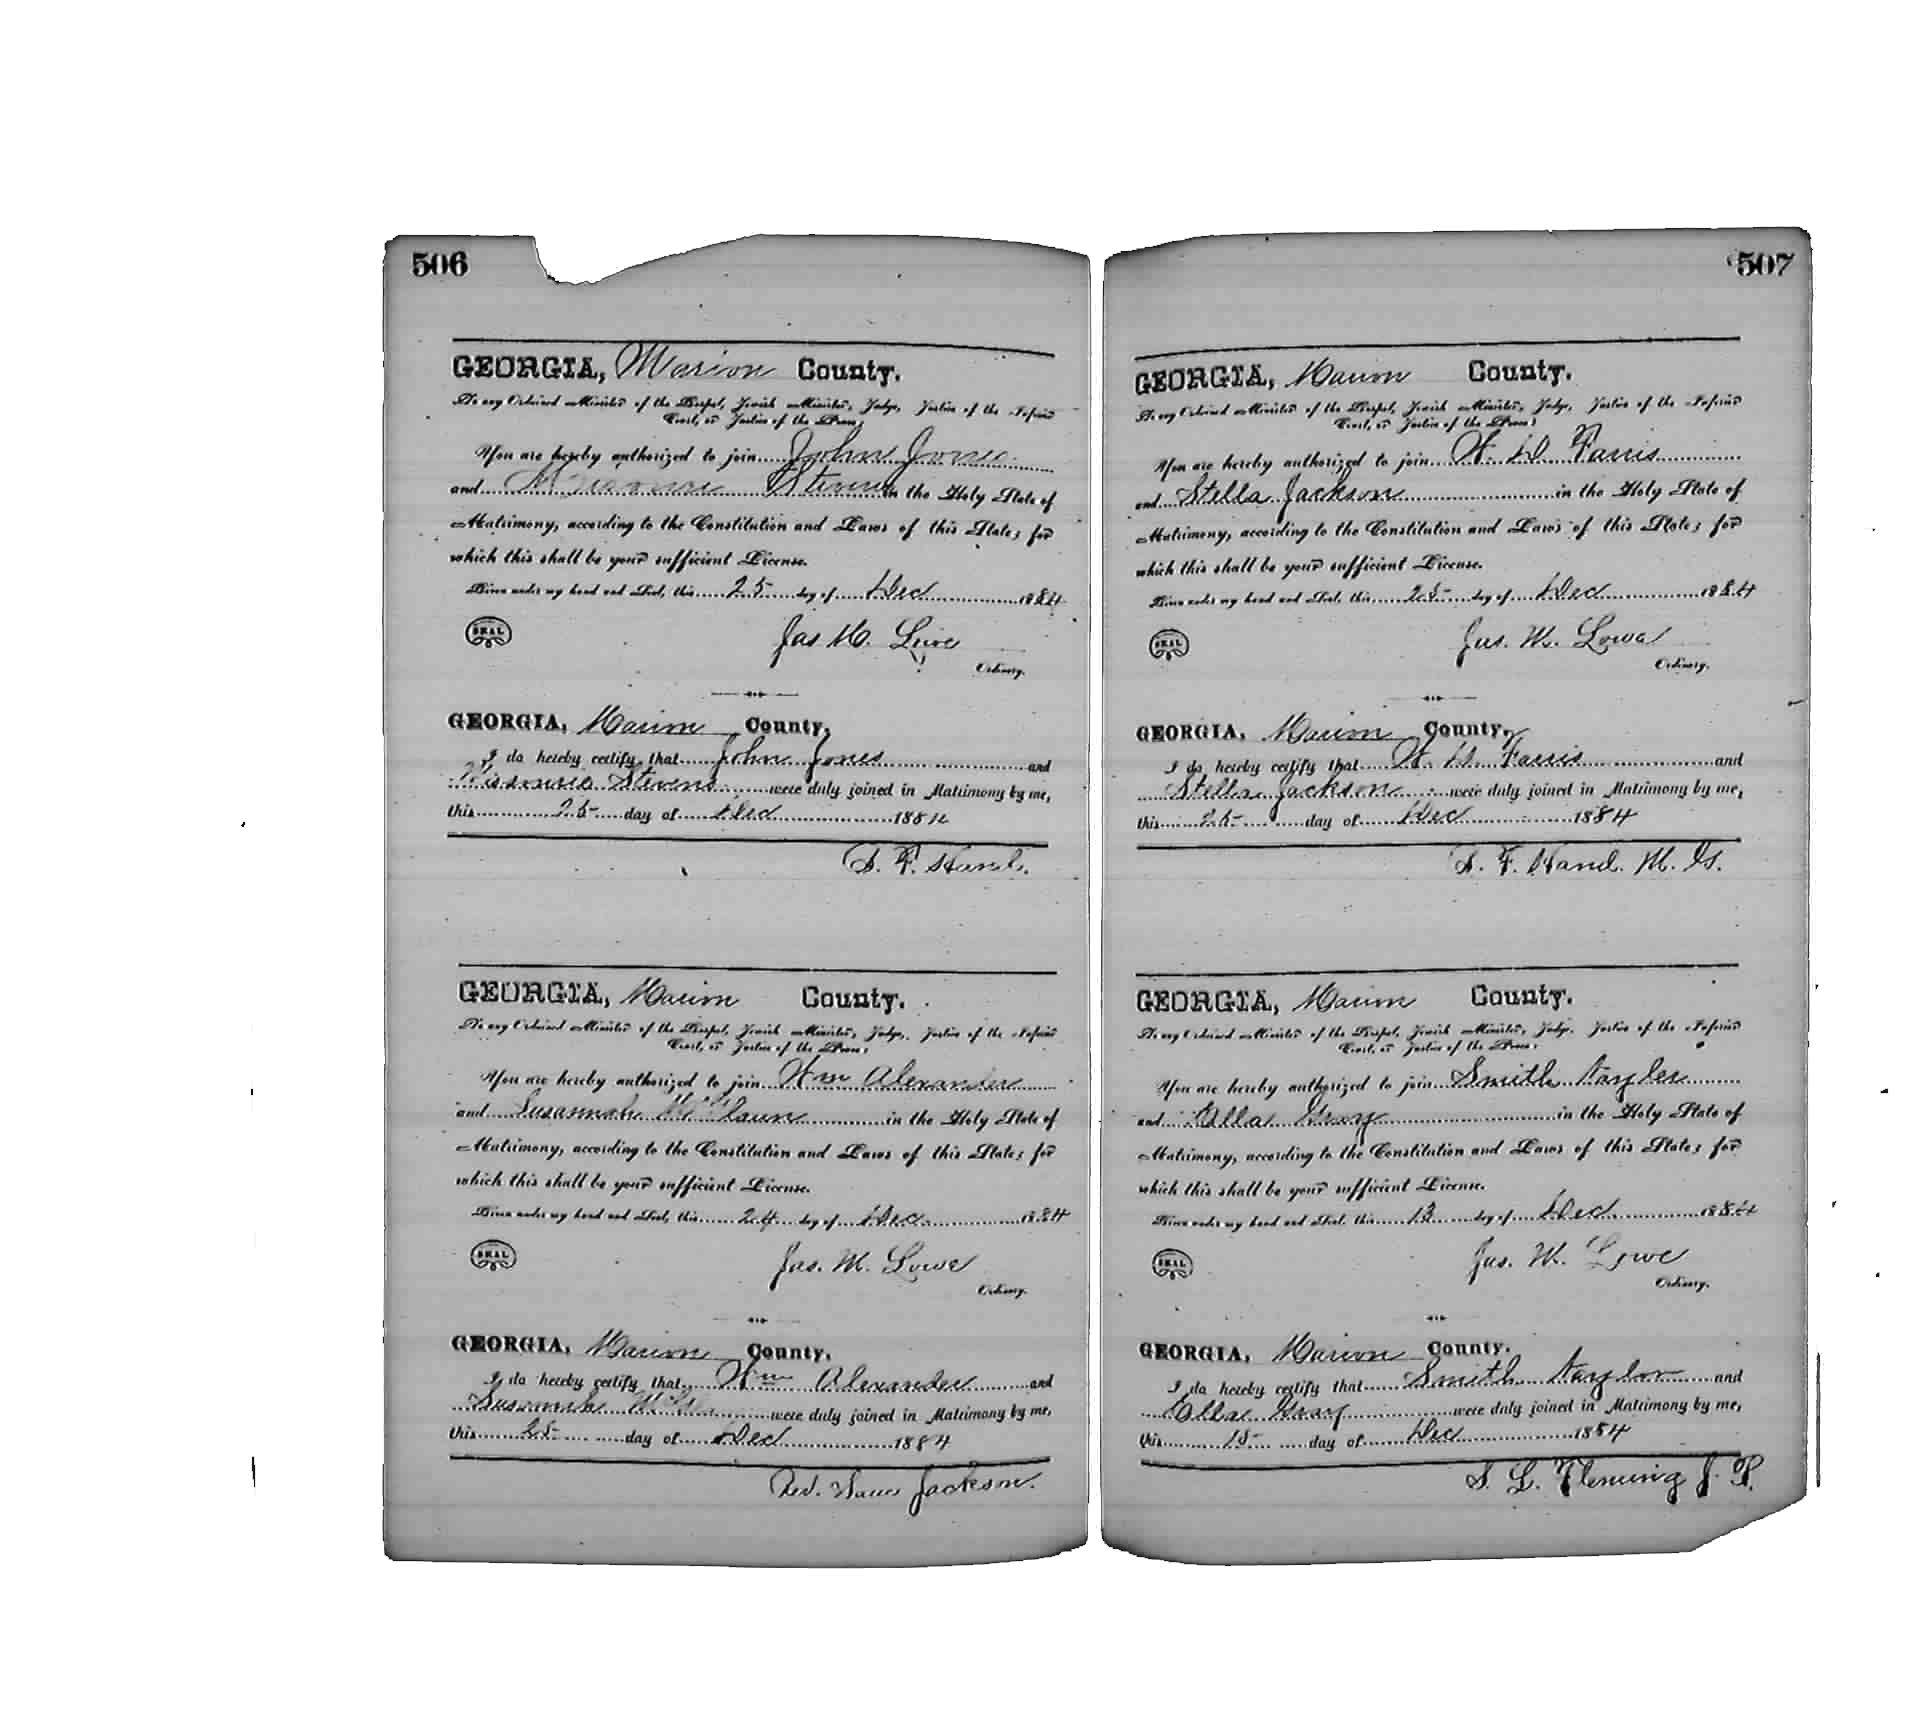 506
GEORGIA, Marion County.
To any Ordained Minister of the Gospel, Jewish Minister, Judge, Justice of the Inferior
Court, or Justice of the Peace:
You are hereby authorized to join John Jones
and Stevens in the Holy State of
Matrimony, according to the Constitution and Laws of this State; for
which this shall be your sufficient License.
Given under my hand and Seal, this 25 day of Dec 1884
SEAL
Jas M. Lowe
Ordinary.
GEORGIA, Marion County,
I do hereby certify that John Jones and
Stevens were duly joined in Matrimony by me,
this 25 day of Dec 1884
S. F. Hand.
GEORGIA, Marion County.
To any Ordained Minister of the Gospel, Jewish Minister, Judge, Justice of the Inferior
Court, or Justice of the Peace:
You are hereby authorized to join Wm Alexander
and Susannah in the Holy State of
Matrimony, according to the Constitution and Laws of this State; for
which this shall be your sufficient License.
Given under my hand and Seal, this 24 day of Dec. 1884
SEAL
Jas. M. Lowe
Ordinary.
GEORGIA, Marion County,
I do hereby certify that Wm Alexander and
Susannah were duly joined in Matrimony by me,
this 25 day of Dec 1884
Rev. Jackson.
507
GEORGIA, Marion County.
To any Ordained Minister of the Gospel, Jewish Minister, Judge, Justice of the Inferior
Court, or Justice of the Peace:
You are hereby authorized to join W. D Farris
and Stella Jackson in the Holy State of
Matrimony, according to the Constitution and Laws of this State; for
which this shall be your sufficient License.
Given under my hand and Seal, this 25 day of Dec 1884
SEAL
Jas. M. Lowe
Ordinary.
GEORGIA, Marion County,
I do hereby certify that W. D. Farris and
Stella Jackson were duly joined in Matrimony by me,
this 25 day of Dec 1884
S. F. Hand. M. G.
GEORGIA, Marion County.
To any Ordained Minister of the Gospel, Jewish Minister, Judge, Justice of the Inferior
Court, or Justice of the Peace:
You are hereby authorized to join Smith Taylor
and Ella Gray in the Holy State of
Matrimony, according to the Constitution and Laws of this State; for
which this shall be your sufficient License.
Given under my hand and Seal, this 13 day of Dec 1884
SEAL
Jas. M. Lowe
Ordinary.
GEORGIA, Marion County.
I do hereby certify that Smith Taylor and
Ella Gray were duly joined in Matrimony by me,
this 15 day of Dec 1884
S. L. Fleming J. P.